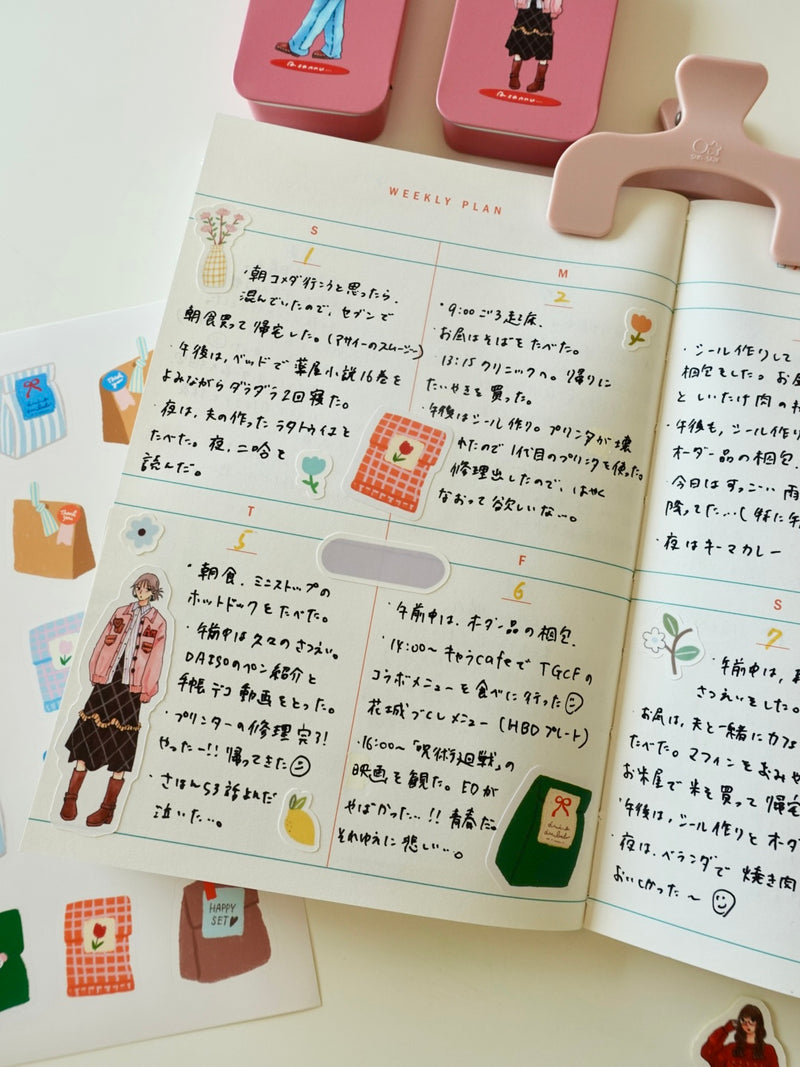 WEEKLY PLAN
S
1
・朝コメダ行こうと思ったら、
混んでいたので、セブンで
朝食買って帰宅した。(アサイーのスムージー)
・午後は、ベッドで薬屋小説16巻を
よみながらダラダラ2回寝た。
・夜は、夫の作ったラタトゥイユを
たべた。夜、二哈を
読んだ。
M
2
・9:00ごろ起床。
・お昼はそばをたべた。
・13:15クリニックへ。帰りに
たいやきを買った。
・午後はシール作り。プリンタが壊
れたので1代目のプリンタを使った。
修理出したので、はやく
なおって欲しいな…。
T
5
・朝食、ミニストップの
ホットドックをたべた。
・午前中は久々のさつえい。
DAISOのペン紹介と
手帳デコ動画をとった。
・プリンターの修理完了!
やったー!!帰ってきた
・さはん53話よんだ
泣いた…。
F
6
・午前中は、オーダー品の梱包。
・14:00~キャラcafeでTGCFの
コラボメニューを食べに行った
花城づくしメニュー(HBDプレート)
・16:00~「呪術廻戦」の
映画を観た。EDが
やばかった…!!青春だ。
それゆえに悲しい…。
・シール作りして
梱包をした。お昼
としいたけ肉の
・午後も、シール作り
オーダー品の梱包。
・今日はすっごい雨
降ってた…(特に午
・夜はキーマカレー
S
7
・午前中は、
さつえいをした。
お昼は、夫と一緒にカフェ
たべた。マフィンをおみや
お米屋で米を買って帰宅
・午後は、シール作りとオーダ
・夜は、ベランダで焼き肉
おいしかった~
Thank you
HAPPY
SET